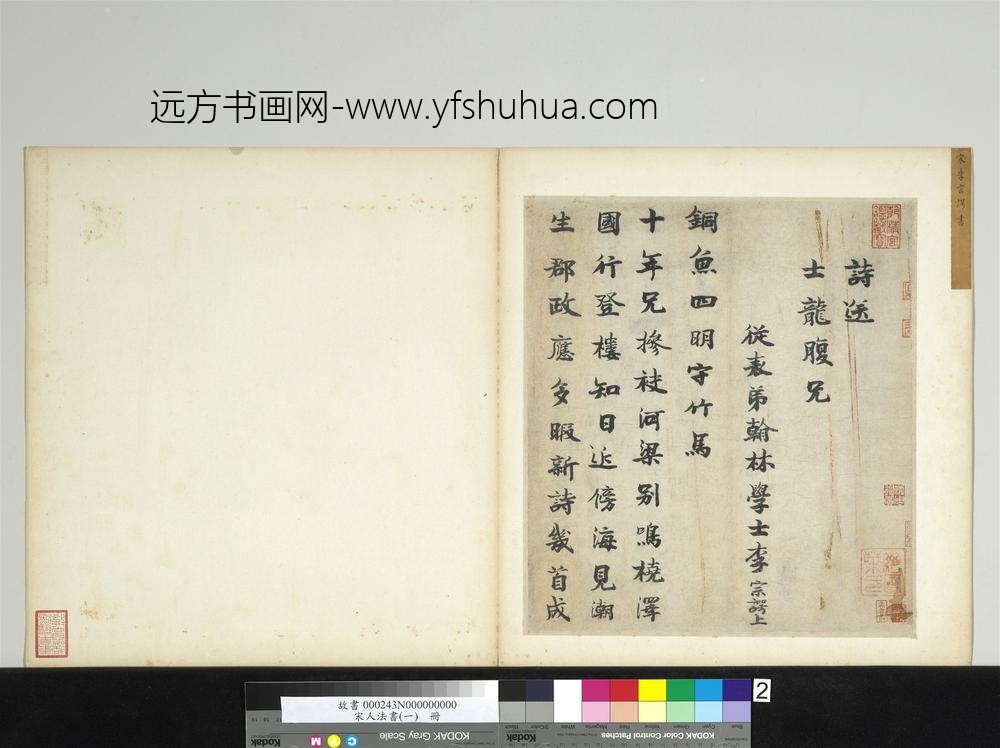 远方书画网-www.yfshuhua.com
詩送
士龍腹兄
從表弟翰林學士李宗諤上
銅魚四明守竹馬
十年兄摻袂河梁别鳴橈澤
國行登樓知日近傍海見潮
生郡政應多暇新詩幾首成
故書 000243N000000000
宋人法書(一) 冊
KODAK Gray Scale
KODAK Color Control Patches
Kodak
Kodak
C
Y
M
2